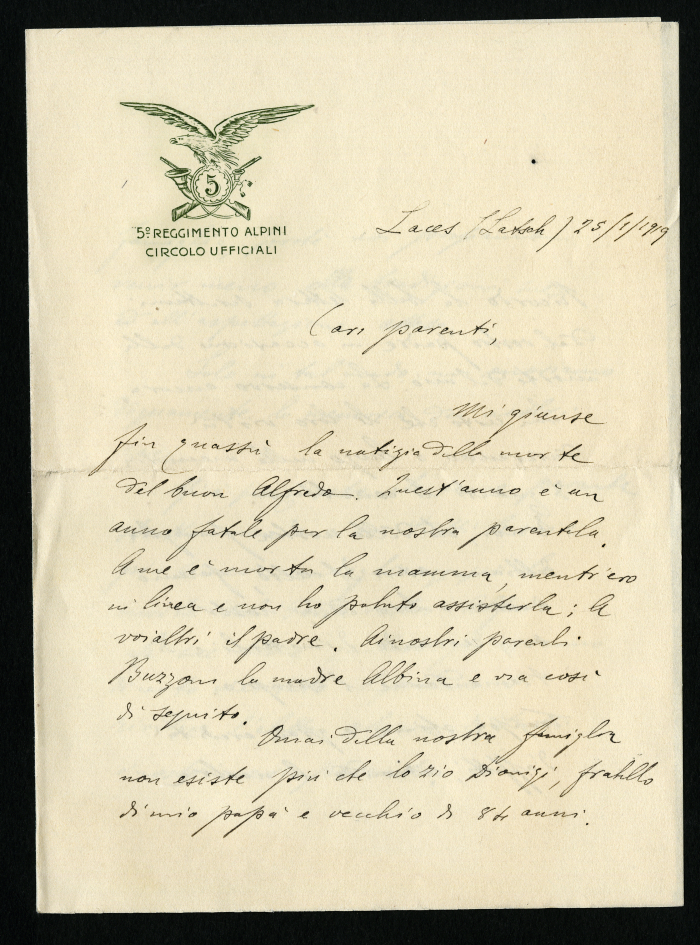 5
5º REGGIMENTO ALPINI
CIRCOLO UFFICIALI
Laces (Latsch) 25/1/1919
Cari parenti,
Mi giunse
fin quassù la notizia della morte
del buon Alfredo. Quest'anno è un
anno fatale per la nostra parentela.
A me è morta la mamma, mentr'ero
in linea e non ho potuto assisterla; A
voialtri il padre. Ai nostri parenti
Buzzoni la madre Albina e via così
di seguito.
Omai della nostra famiglia
non esiste più che lo zio Dionigi, fratello
di mio papà e vecchio di 84 anni.